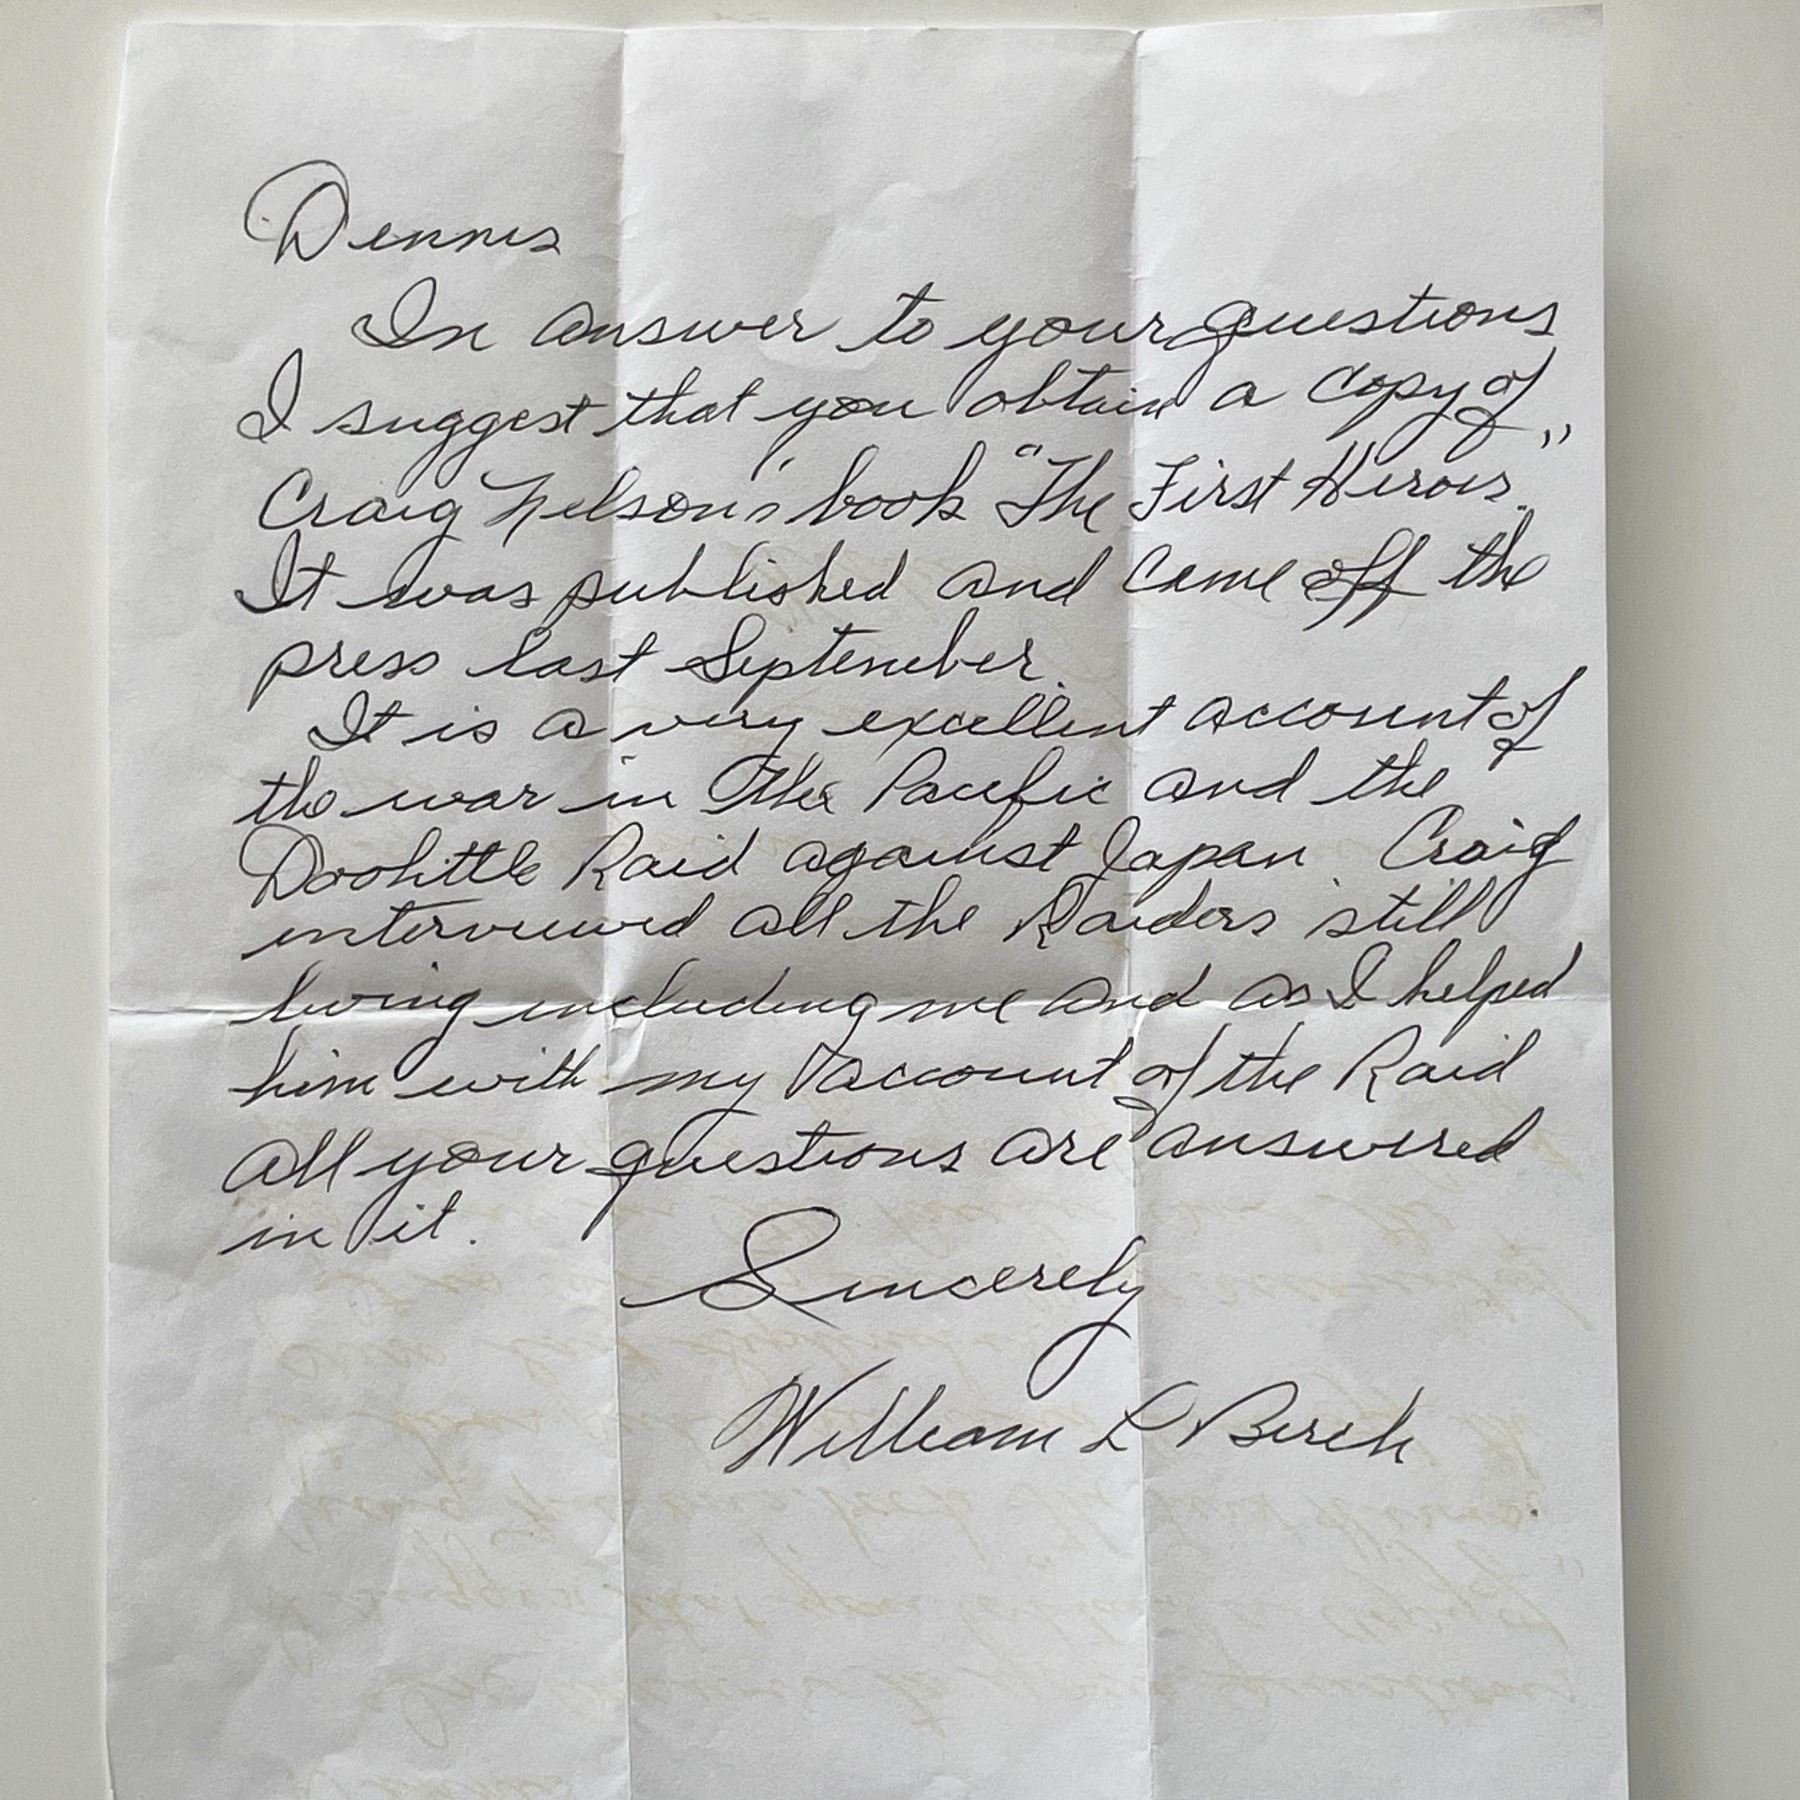 Dennis
In answer to your questions
I suggest that you obtain a copy of
Craig Nelson's book "The First Heroes."
It was published and came off the
press last September.
It is a very excellent account of
the war in the Pacific and the
Doolittle Raid against Japan. Craig
interviewed all the Raiders still
living including me and as I helped
him with my account of the Raid
all your questions are answered
in it.
Sincerely
William L Birch